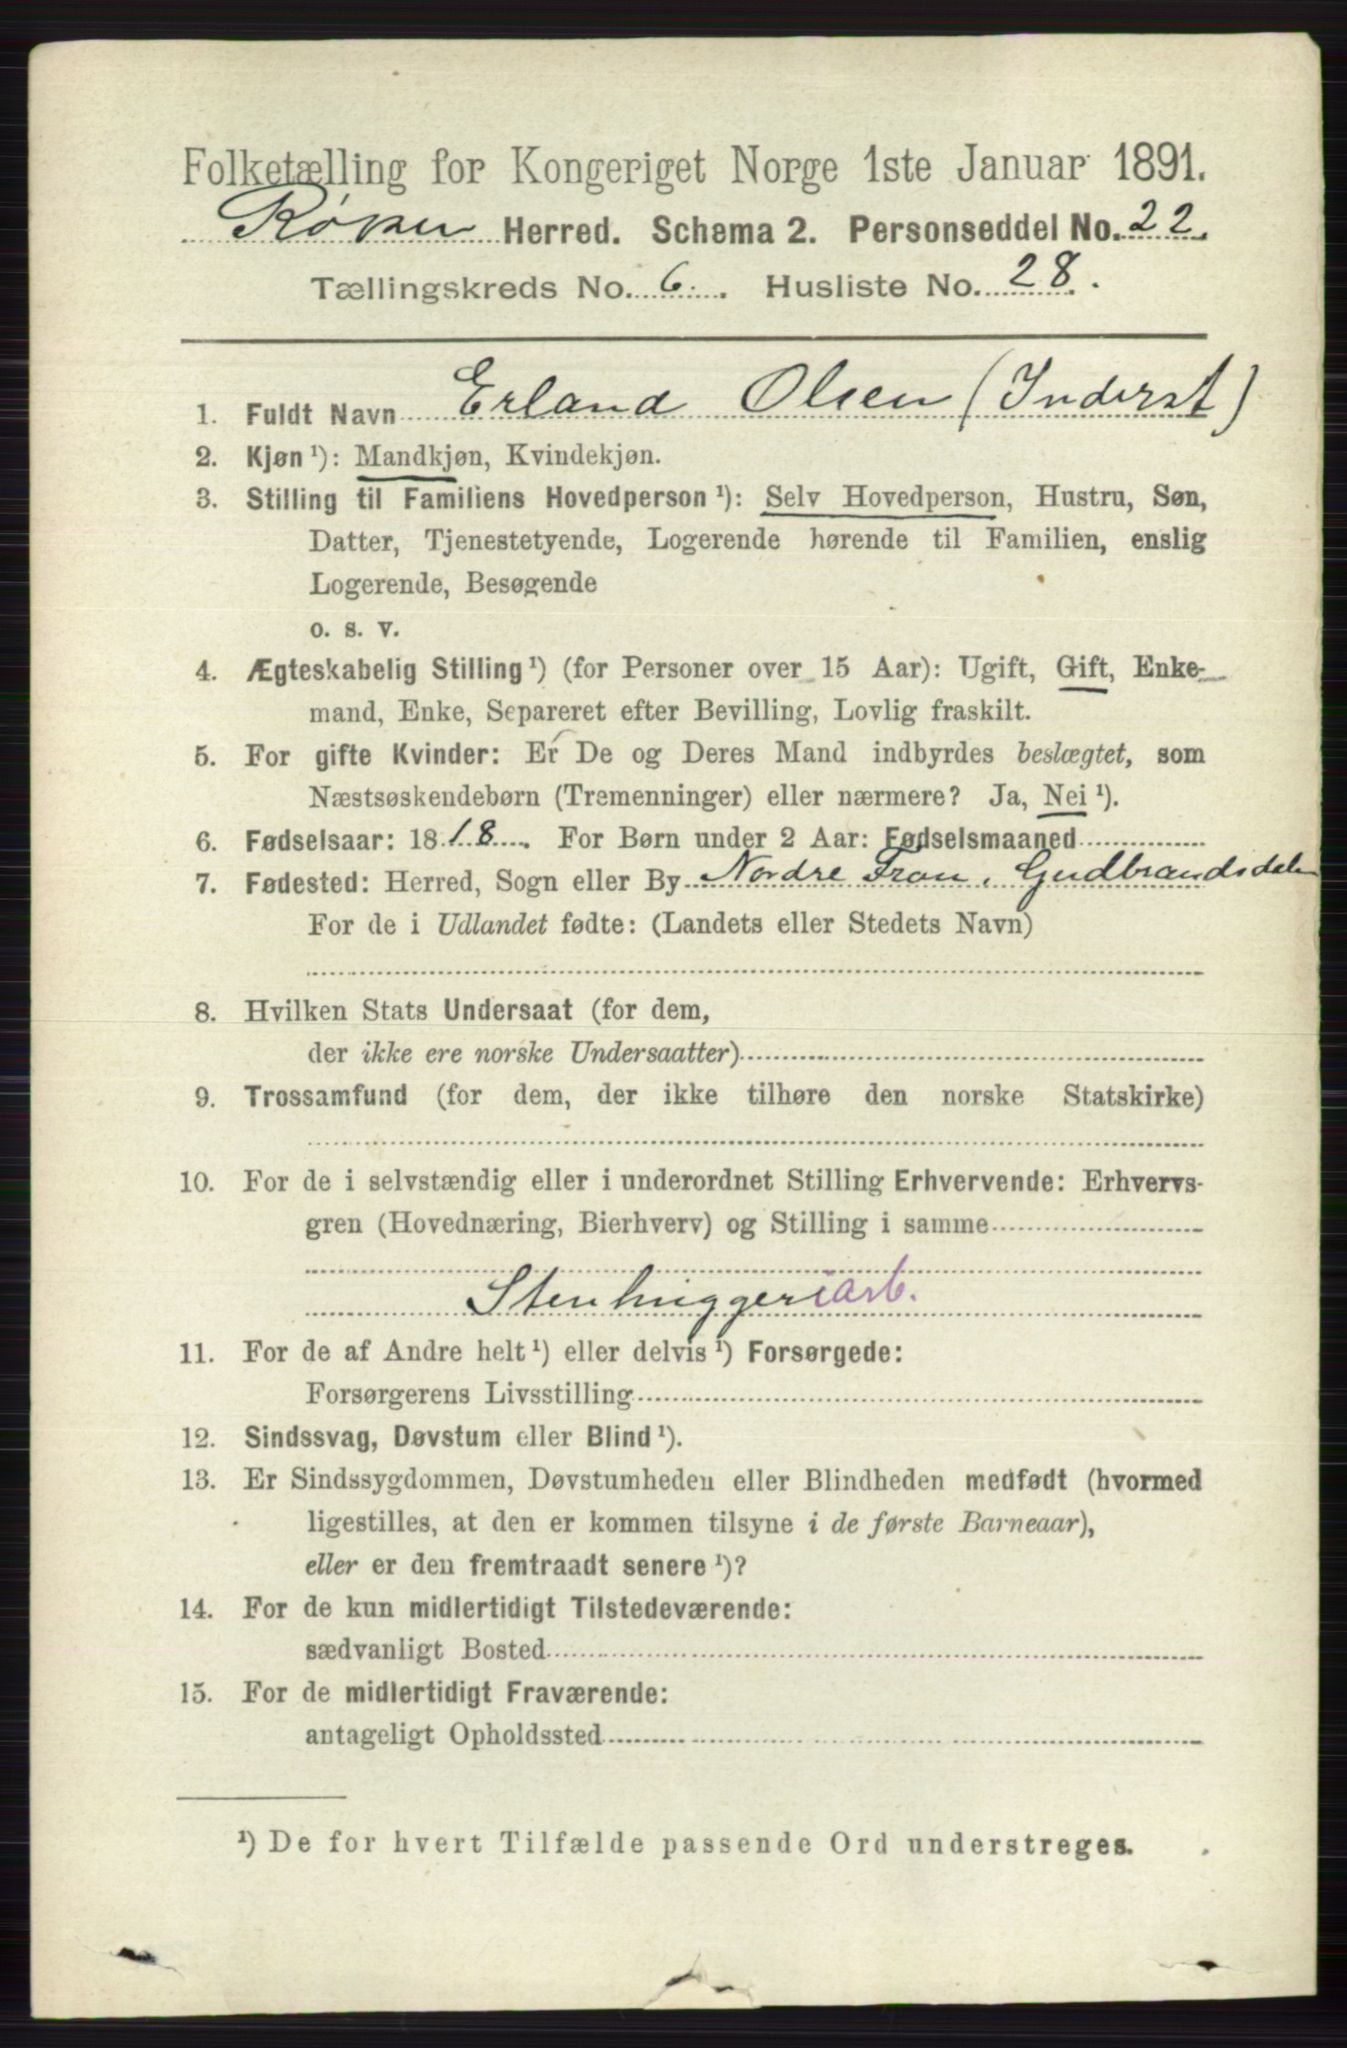 Folketælling for Kongeriget Norge 1ste Januar 1891.
Røken Herred. Schema 2. Personseddel No. 22.
Tællingskreds No. 6. Husliste No. 28.
1. Fuldt Navn Erland Olsen (Inderst)
2. Kjøn ¹): Mandkjøn, Kvindekjøn.
3. Stilling til Familiens Hovedperson ¹): Selv Hovedperson, Hustru, Søn,
Datter, Tjenestetyende, Logerende hørende til Familien, enslig
Logerende, Besøgende
o. s. v.
4. Ægteskabelig Stilling ¹) (for Personer over 15 Aar): Ugift, Gift, Enke-
mand, Enke, Separeret efter Bevilling, Lovlig fraskilt.
5. For gifte Kvinder: Er De og Deres Mand indbyrdes beslægtet, som
Næstsøskendebørn (Tremenninger) eller nærmere? Ja, Nei ¹).
6. Fødselsaar: 1818. For Børn under 2 Aar: Fødselsmaaned
7. Fødested: Herred, Sogn eller By Nordre Fron, Gudbrandsdalen
For de i Udlandet fødte: (Landets eller Stedets Navn)
8. Hvilken Stats Undersaat (for dem,
der ikke ere norske Undersaatter)
9. Trossamfund (for dem, der ikke tilhøre den norske Statskirke)
10. For de i selvstændig eller i underordnet Stilling Erhvervende: Erhvervs-
gren (Hovednæring, Bierhverv) og Stilling i samme
Stenhuggeriarb.
11. For de af Andre helt ¹) eller delvis ¹) Forsørgede:
Forsørgerens Livsstilling
12. Sindssvag, Døvstum eller Blind ¹).
13. Er Sindssygdommen, Døvstumheden eller Blindheden medfødt (hvormed
ligestilles, at den er kommen tilsyne i de første Barneaar),
eller er den fremtraadt senere ¹)?
14. For de kun midlertidigt Tilstedeværende:
sædvanligt Bosted
15. For de midlertidigt Fraværende:
antageligt Opholdssted
¹) De for hvert Tilfælde passende Ord understreges.